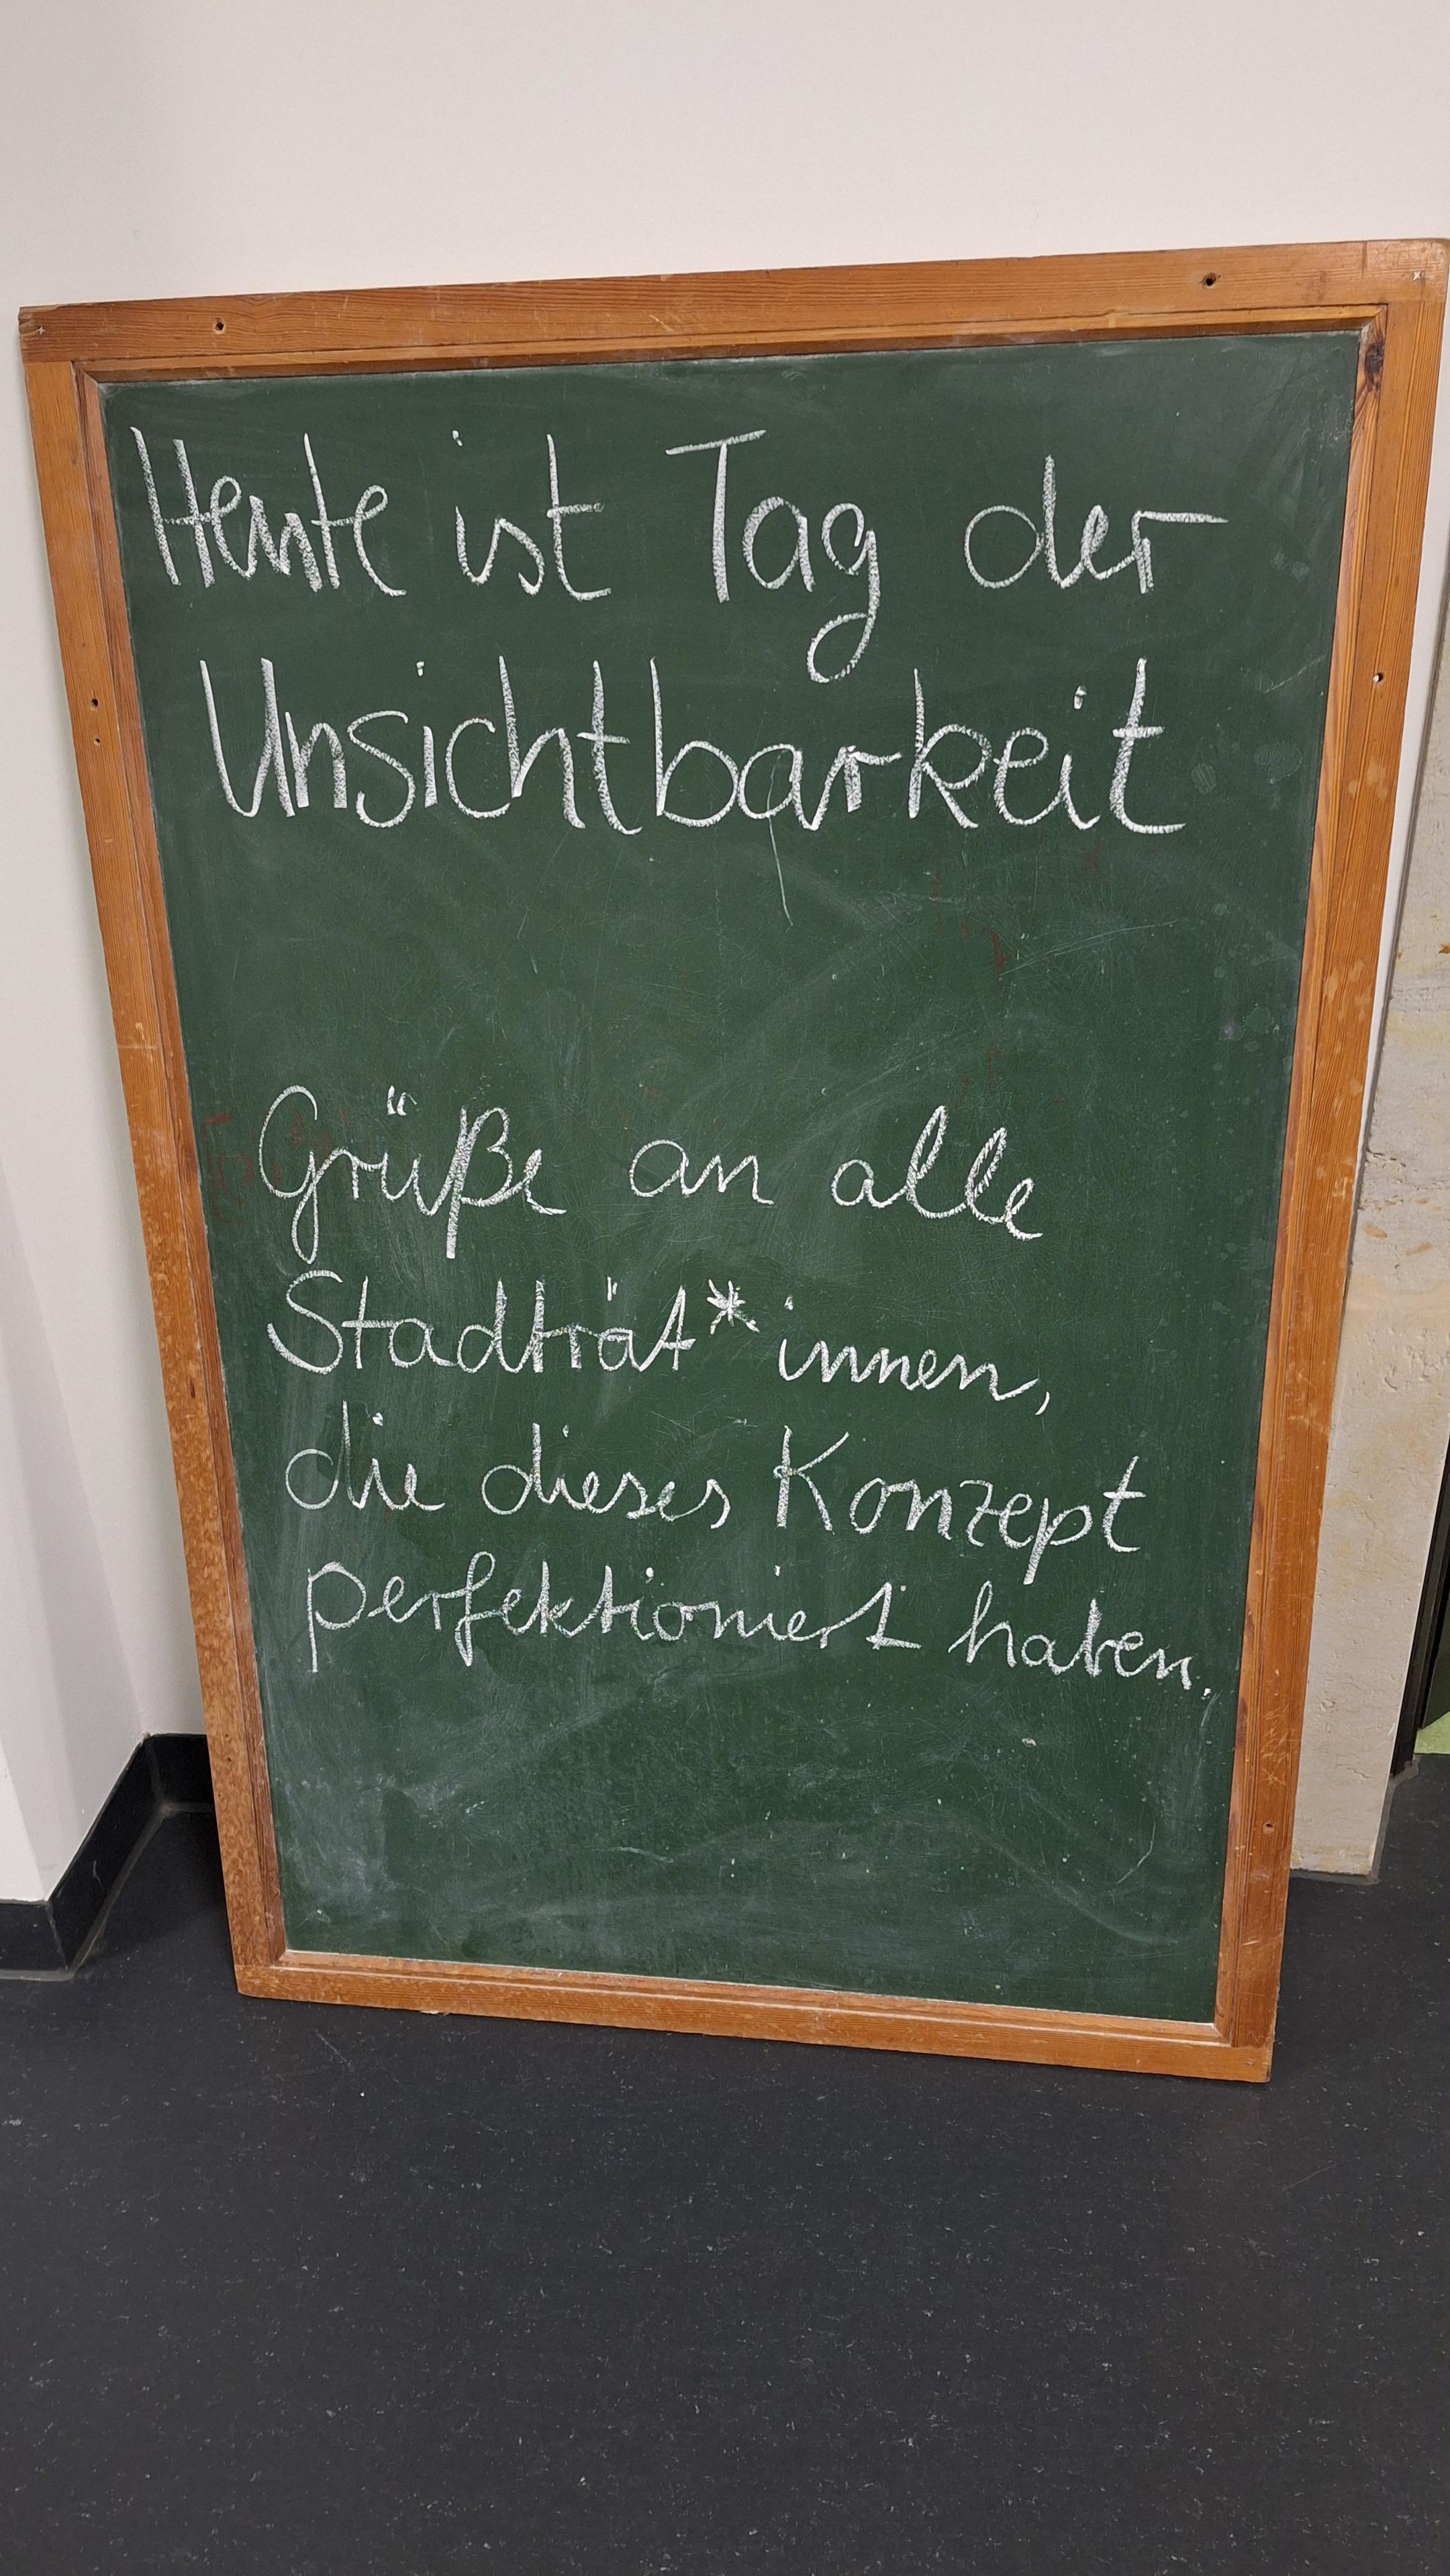 Heute ist Tag der
Unsichtbarkeit
Grüße an alle
Stadträt*innen,
die dieses Konzept
perfektioniert haben.